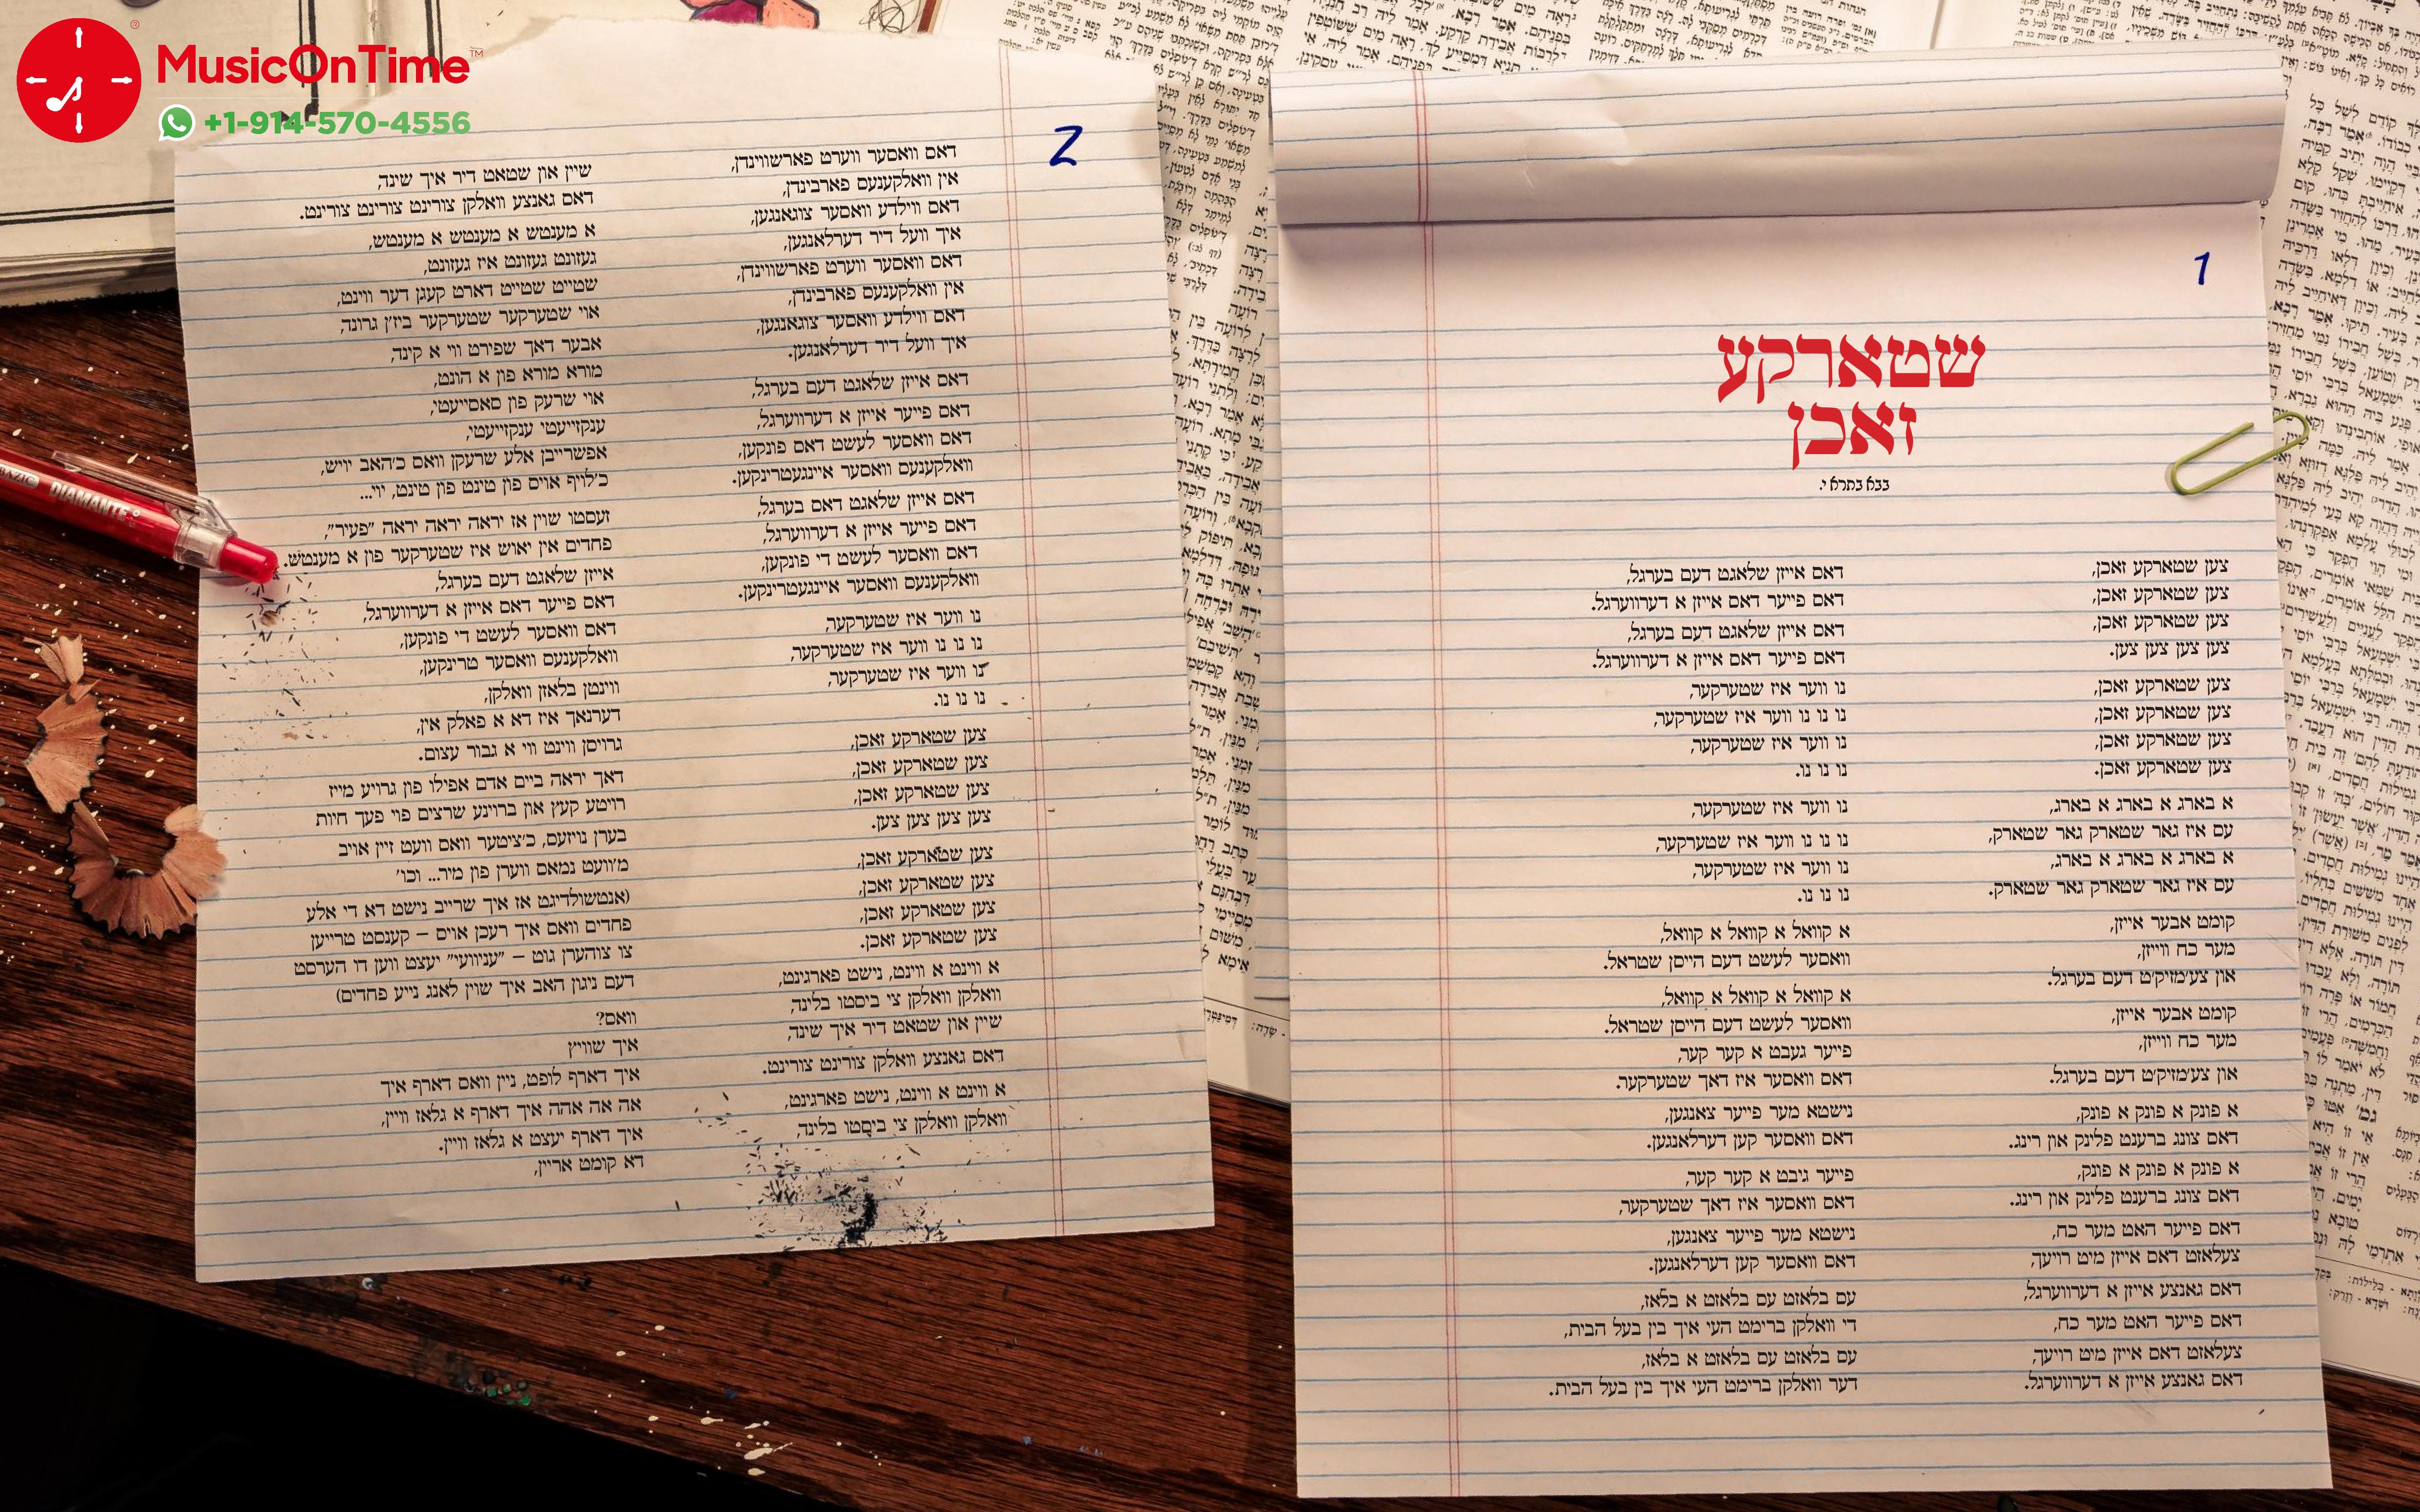 MusicOnTime™
+1-914-570-4556
1
שטארקע
זאכן
בבא בתרא י.
צען שטארקע זאכן,
צען שטארקע זאכן,
צען שטארקע זאכן,
צען צען צען צען.
צען שטארקע זאכן,
צען שטארקע זאכן,
צען שטארקע זאכן,
צען שטארקע זאכן.
א בארג א בארג א בארג,
עם איז גאר שטארק גאר שטארק,
א בארג א בארג א בארג,
עם איז גאר שטארק גאר שטארק.
קומט אבער אייזן,
מער כח ווייזן,
און צע׳מזיק׳ט דעם בערגל.
קומט אבער אייזן,
מער כח ווייזן,
און צע׳מזיק׳ט דעם בערגל.
א פונק א פונק א פונק,
דאס צונג ברענט פלינק און רינג.
א פונק א פונק א פונק,
דאס צונג ברענט פלינק און רינג.
דאס פייער האט מער כח,
צעלאזט דאס אייזן מיט רויעך,
דאס גאנצע אייזן א דערווערגל,
דאס פייער האט מער כח,
צעלאזט דאס אייזן מיט רויעך,
דאס גאנצע אייזן א דערווערגל.
דאס אייזן שלאגט דעם בערגל,
דאס פייער דאס אייזן א דערווערגל.
דאס אייזן שלאגט דעם בערגל,
דאס פייער דאס אייזן א דערווערגל.
נו ווער איז שטערקער,
נו נו נו ווער איז שטערקער,
נו ווער איז שטערקער,
נו נו נו.
נו ווער איז שטערקער,
נו נו נו ווער איז שטערקער,
נו ווער איז שטערקער,
נו נו נו.
א קוואל א קוואל א קוואל,
וואסער לעשט דעם הייסן שטראל.
א קוואל א קוואל א קוואל,
וואסער לעשט דעם הייסן שטראל.
פייער געבט א קער קער,
דאס וואסער איז דאך שטערקער.
נישטא מער פייער צאנגען,
דאס וואסער קען דערלאנגען.
פייער גיבט א קער קער,
דאס וואסער איז דאך שטערקער,
נישטא מער פייער צאנגען,
דאס וואסער קען דערלאנגען.
עם בלאזט עם בלאזט א בלאז,
די וואלקן ברימט העי איך בין בעל הבית,
עם בלאזט עם בלאזט א בלאז,
דער וואלקן ברימט העי איך בין בעל הבית.
2
דאס וואסער ווערט פארשווינדן,
אין וואלקענעס פארבינדן,
דאס ווילדע וואסער צוגאנגען,
איך וועל דיר דערלאנגען,
דאס וואסער ווערט פארשווינדן,
אין וואלקענעס פארבינדן,
דאס ווילדע וואסער צוגאנגען,
איך וועל דיר דערלאנגען.
דאס אייזן שלאגט דעם בערגל,
דאס פייער אייזן א דערווערגל,
דאס וואסער לעשט דאס פונקען,
וואלקענעס וואסער איינגעטרינקען.
דאס אייזן שלאגט דאס בערגל,
דאס פייער אייזן א דערווערגל,
דאס וואסער לעשט די פונקען,
וואלקענעס וואסער איינגעטרינקען.
נו ווער איז שטערקער,
נו נו נו ווער איז שטערקער,
נו ווער איז שטערקער,
נו נו נו.
צען שטארקע זאכן,
צען שטארקע זאכן,
צען שטארקע זאכן,
צען צען צען צען.
צען שטארקע זאכן,
צען שטארקע זאכן,
צען שטארקע זאכן,
צען שטארקע זאכן.
א ווינט א ווינט, נישט פארגינט,
וואלקן וואלקן צי ביסטו בלינד,
שיין און שטאט דיר איך שינד,
דאס גאנצע וואלקן צורינט צורינט.
א ווינט א ווינט, נישט פארגינט,
וואלקן וואלקן צי ביסטו בלינד,
שיין און שטאט דיר איך שינד,
דאס גאנצע וואלקן צורינט צורינט צורינט.
א מענטש א מענטש א מענטש,
געזונט געזונט איז געזונט,
שטייט שטייט דארט קעגן דער ווינט,
אוי שטערקער שטערקער ביז׳ן גרונד,
אבער דאך שפירט ווי א קינד,
מורא מורא פון א הונט,
אוי שרעק פון סאסייעטי,
ענקזייעטי ענקזייעטי,
אפשרייבן אלע שרעקן וואס כ׳האב יוויש,
כ׳לויף אויס פון טינט פון טינט, יוי...
זעסטו שוין אז יראה יראה יראה ״פעיר״,
פחדים אין יאוש איז שטערקער פון א מענטש.
אייזן שלאגט דעם בערגל,
דאס פייער דאס אייזן א דערווערגל,
דאס וואסער לעשט די פונקען,
וואלקענעס וואסער טרינקען,
ווינטן בלאזן וואלקן,
דערנאך איז דא א פאלק אין,
גרויסן ווינט ווי א גבור עצום.
דאך יראה ביים אדם אפילו פון גרויע מייז
רויטע קעץ און ברוינע שרצים פוי פעך חיות
בערן נויזעם, כ׳ציטער וואס וועט זיין אויב
מ׳וועט נמאס ווערן פון מיר... וכו׳
(אנטשולדיגט אז איך שרייב נישט דא די אלע
פחדים וואס איך רעכן אויס – קענסט טרייען
צו צוהערן גוט – ״עניוועי״ יעצט ווען דו הערסט
דעם ניגון האב איך שוין לאנג נייע פחדים)
וואס?
איך שוויץ
איך דארף לופט, ניין וואס דארף איך
אה אה אהה איך דארף א גלאז וויין,
איך דארף יעצט א גלאז וויין.
דא קומט אריין,
DIAMANTE